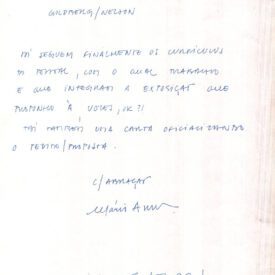 GILDBERG/NELSON
AÍ SEGUEM FINALMENTE OS CURRÍCULOS
DO PESSOAL, COM O QUAL TRABALHO
E QUE INTEGRAM A EXPOSIÇÃO QUE
PROPONHO À VOCÊS, OK?!
AÍ TAMBÉM UMA CARTA OFICIALIZANDO
O PEDIDO/PROPOSTA.
C/ ABRAÇOS